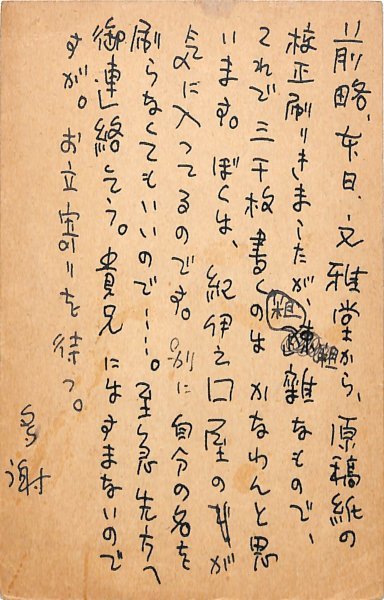 前略、本日、文雅堂から、原稿紙の
校正刷りきましたが、粗雑なもので、
これで三千枚書くのはかなわんと思
います。ぼくは、紀伊之口屋のが
気に入ってるのです。別に自分の名を
刷らなくてもいいので……。至急先方へ
御連絡乞う。貴兄にはすまないので
すが。お立寄りを待つ。
多謝